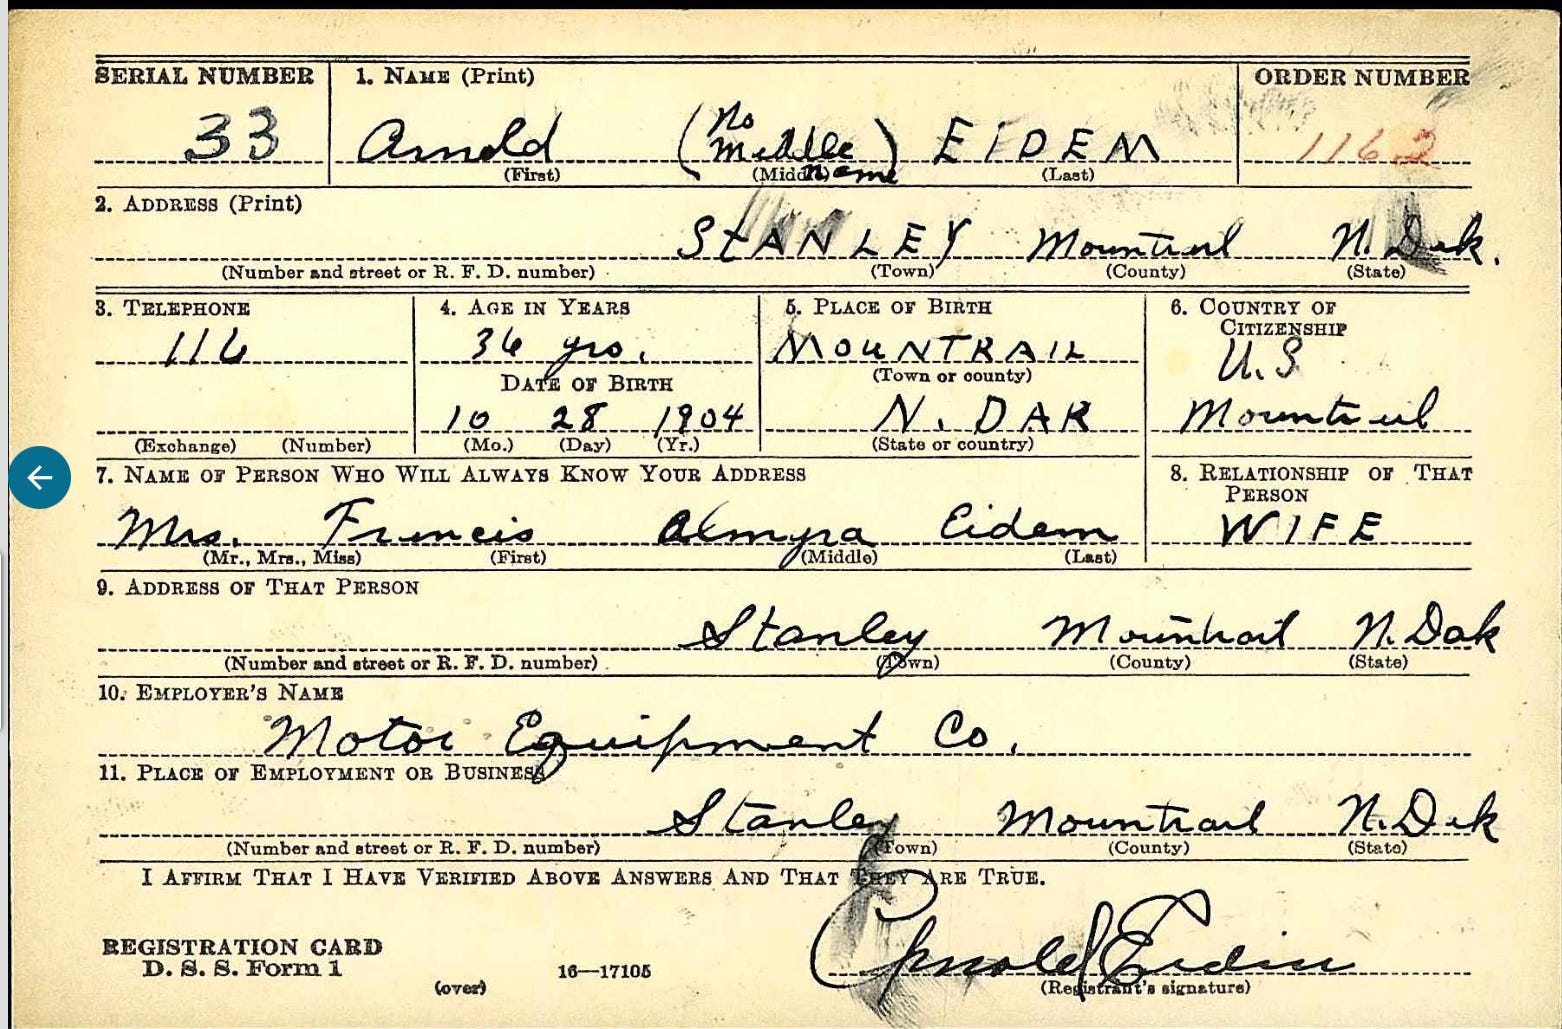 SERIAL NUMBER 1. NAME (Print) ORDER NUMBER
33 Arnold (No Middle name) EIDEM 1162
(First) (Middle) (Last)
2. ADDRESS (Print)
STANLEY Mountrail N. Dak.
(Number and street or R. F. D. number) (Town) (County) (State)
3. TELEPHONE 4. AGE IN YEARS 5. PLACE OF BIRTH 6. COUNTRY OF CITIZENSHIP
116 36 yrs. MOUNTRAIL U.S
DATE OF BIRTH (Town or county)
10 28 1904 N. DAK Mountrail
(Exchange) (Number) (Mo.) (Day) (Yr.) (State or country)
7. NAME OF PERSON WHO WILL ALWAYS KNOW YOUR ADDRESS 8. RELATIONSHIP OF THAT PERSON
Mrs. Francis Almyra Eidem WIFE
(Mr., Mrs., Miss) (First) (Middle) (Last)
9. ADDRESS OF THAT PERSON
Stanley Mountrail N. Dak
(Number and street or R. F. D. number) (Town) (County) (State)
10. EMPLOYER'S NAME
Motor Equipment Co.
11. PLACE OF EMPLOYMENT OR BUSINESS
Stanley Mountrail N. Dak
(Number and street or R. F. D. number) (Town) (County) (State)
I AFFIRM THAT I HAVE VERIFIED ABOVE ANSWERS AND THAT THEY ARE TRUE.
Arnold Eidem
REGISTRATION CARD
D. S. S. Form 1 16—17105 (Registrant's signature)
(over)